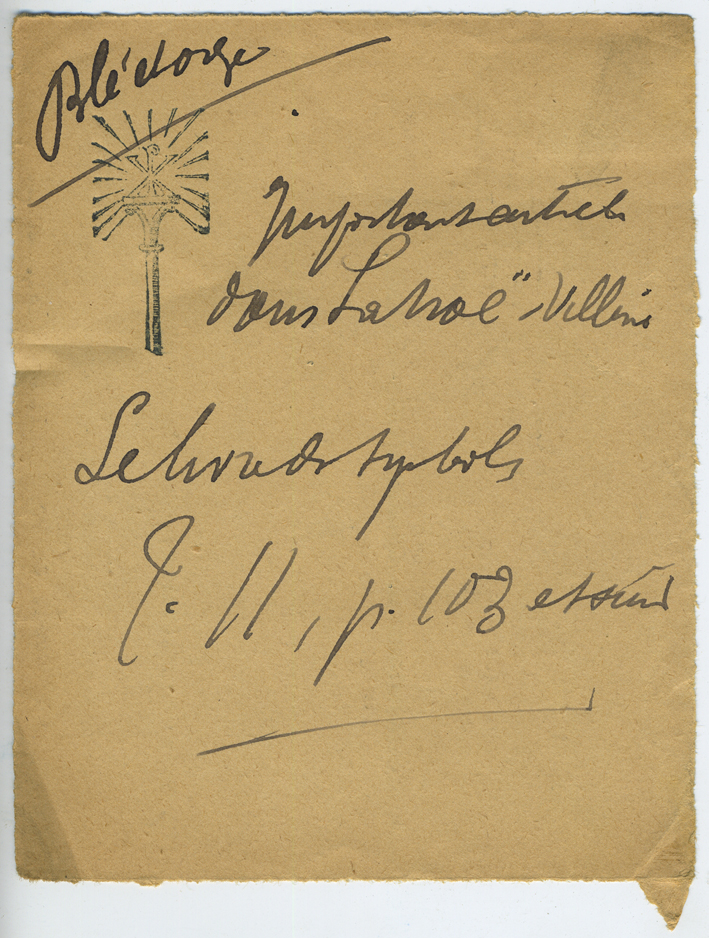 Blé et orge
Important article
dans Lanoë-Villène
Le livre des symboles
T. II, p. 103 et suiv